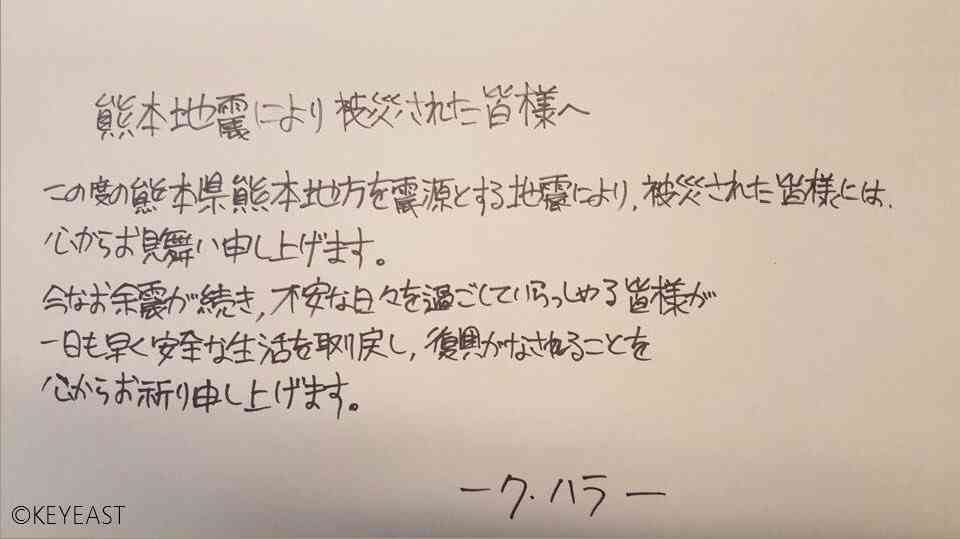 熊本地震により被災された皆様へ
この度の熊本県熊本地方を震源とする地震により、被災された皆様には、
心からお見舞い申し上げます。
今なお余震が続き、不安な日々を過ごしていらっしゃる皆様が
一日も早く安全な生活を取り戻し、復興がなされることを
心からお祈り申し上げます。
ーク・ハラー
©KEYEAST